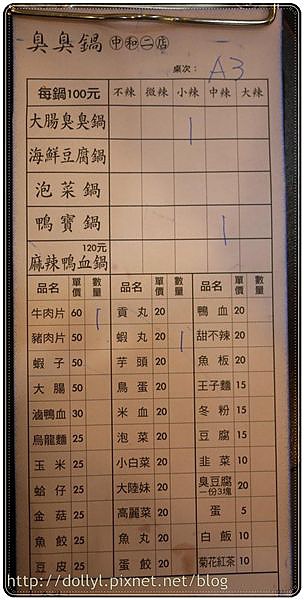 臭臭鍋 中和二店
桌次： A3
每鍋100元 不辣 微辣 小辣 中辣 大辣
大腸臭臭鍋 1
海鮮豆腐鍋
泡菜鍋
鴨寶鍋 1
120元
麻辣鴨血鍋
品名 單價 數量 品名 單價 數量 品名 單價 數量
牛肉片 60 1 貢丸 20 鴨血 20
豬肉片 50 蝦丸 20 1 甜不辣 20
蝦子 50 芋頭 20 魚板 20
大腸 50 鳥蛋 20 王子麵 15
滷鴨血 30 米血 20 冬粉 15
烏龍麵 25 泡菜 20 豆腐 15
玉米 25 小白菜 20 韭菜 10
蛤仔 25 大陸妹 20 臭豆腐 一份3塊 20
金菇 25 高麗菜 20 蛋 5
魚餃 20 魚丸 20 白飯 10
豆皮 25 蛋餃 20 菊花紅茶 10
http://dollyl.pixnet.net/blog